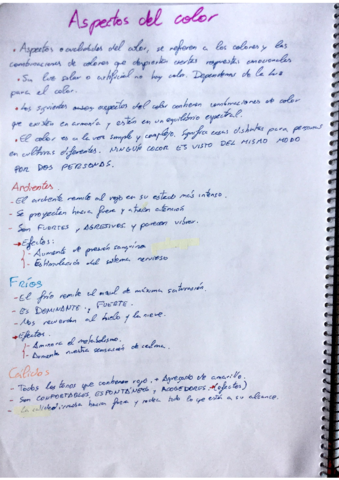 Aspectos del color
• Aspectos o cualidades del color, se refieren a los colores y las
combinaciones de colores que despiertan ciertas respuestas emocionales
• Sin luz solar o artificial no hay color. Dependemos de la luz
para el color.
• Los siguientes aspectos del color contienen combinaciones de color
que existen en armonía y están en un equilibrio espectral.
• El color es a la vez simple y complejo. Significa cosas distintas para personas
en culturas diferentes. NINGÚN COLOR ES VISTO DEL MISMO MODO
POR DOS PERSONAS.
Ardientes.
- El ardiente remite al rojo en su estado más intenso.
- Se proyectan hacia fuera y atraen atención
- Son FUERTES, AGRESIVOS y parecen vibrar.
→ Efectos:
- Aumento de presión sanguínea
- Estimulación del sistema nervioso
Fríos
- El frío remite al azul de máxima saturación.
- ES DOMINANTE, FUERTE.
- Nos recuerdan al hielo y la nieve.
→ Efectos:
- Aminora el metabolismo.
- Aumenta nuestra sensación de calma.
Cálidos
- Todos los tonos que contienen rojo. + Agregado de amarillo.
- Son CONFORTABLES, ESPONTÁNEOS, ACOGEDORES. (efectos)
- La calidez irradia hacia fuera y rodea todo lo que está a su alcance.